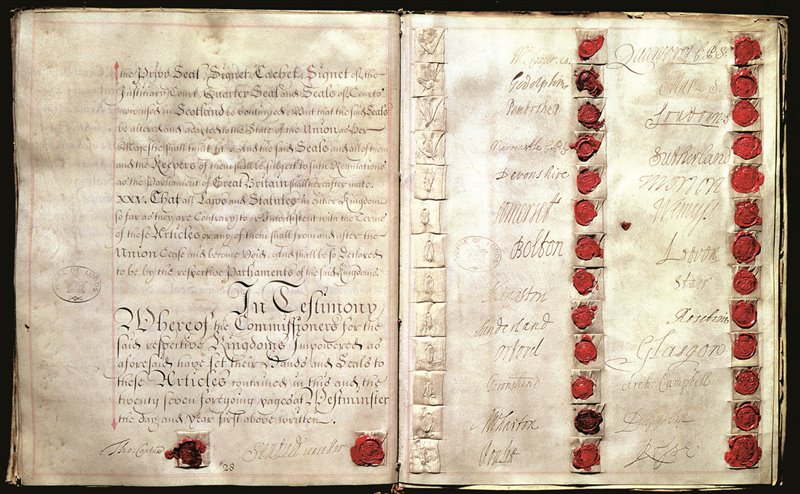 the Privy Seal, Signet, Cachet, Signet of the
Justiciary Court, Quarter Seal and Seals of Courts
now used in Scotland be continued, But that the said Seals
be altered and adapted to the State of the Union as Her
Majestie shall think fit, And the said Seals and all of them
and the Keepers of them shall be subject to such Regulations
as the Parliament of Great Britain shall hereafter make.
XXV. That all Laws and Statutes in either Kingdom
so far as they are Contrary to or Inconsistent with the Terms
of these Articles or any of them shall from and after the
Union Cease and become Void, and shall be so Declared
to be by the respective Parliaments of the said Kingdoms.
In Testimony
Whereof the Commissioners for the
said respective Kingdoms Impowered as
aforesaid have set their Hands and Seals to
these Articles contained in this and the
twenty seven foregoing pages at Westminster
the day and year first above written
Tho: Cantuar
Seafield Cancellar
28
Godolphin
Pembroke
Newcastle
Devonshire
Somerset
Bolton
Kingston
Sunderland
Orford
Townshend
Wharton
Poulet
Queensberry
Mar
Loudoun
Sutherland
Morton
Wemyss
Leven
Stair
Rosebery
Glasgow
Arch: Campbell
Dupplin